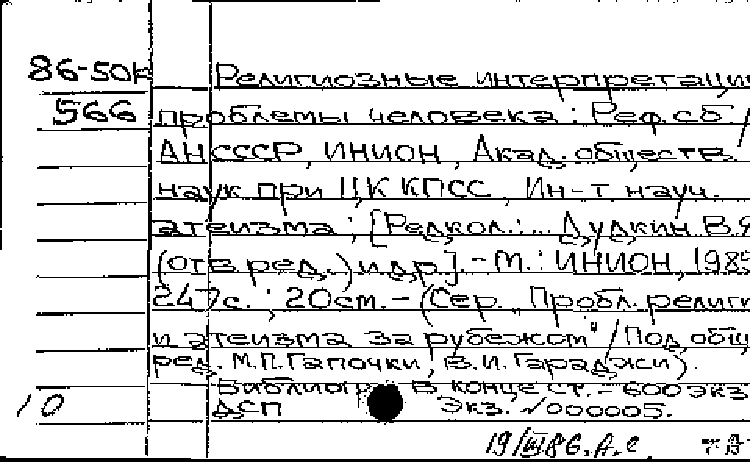 86-50к Религиозные интерпретации
566 проблемы человека : Реф.сб /
АН СССР, ИНИОН, Акад. обществ.
наук при ЦК КПСС, Ин-т науч.
атеизма ; [Редкол.: ... Дудкин В.Я
(отв. ред.) и др.]. - М. : ИНИОН, 1985
247 с. ; 20 см. - (Сер. „Пробл. религи
и атеизма за рубежом" / Под общ
ред. М.П. Гапочки, В.И. Гараджи).
Библиогр. в конце ст. - 600 экз
10 ДСП Экз. √000005.
19/III 86. А.С.